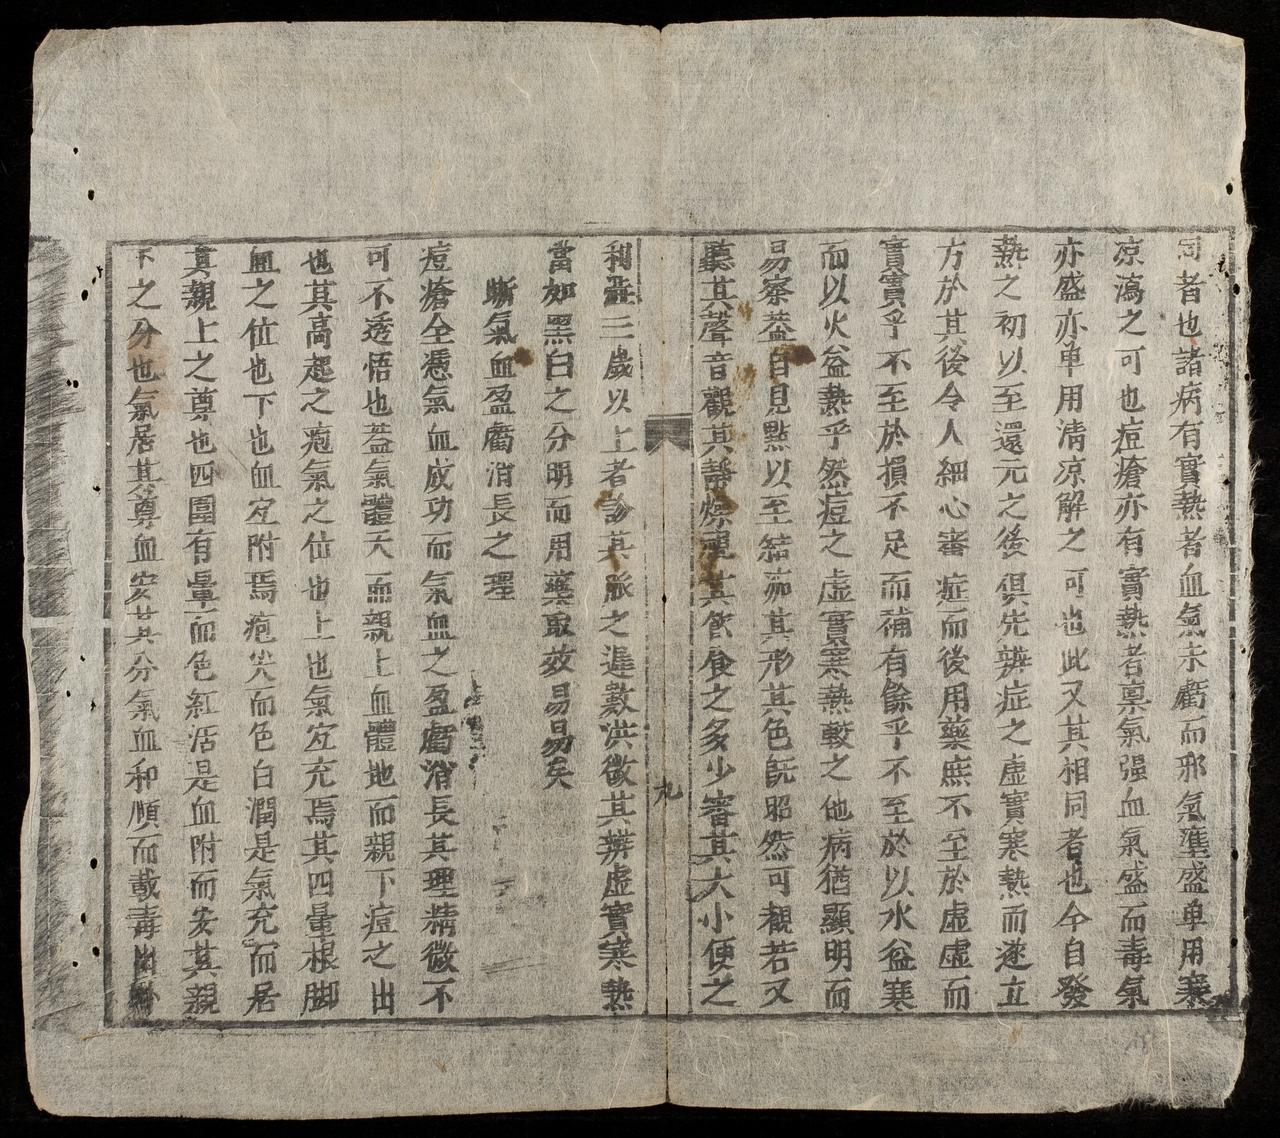 同者也諸病有實熱者血氣未虧而邪氣壅盛单用寒
凉瀉之可也痘瘡亦有實熱者禀氣强血氣盛而毒氣
亦盛亦单用清凉解之可也此又其相同者也今自發
熱之初以至還元之後俱先辨症之虚實寒熱而遂立
方於其後令人細心審症而後用藥庶不至於虚虚而
實實乎不至於損不足而補有餘乎不至於以水益寒
而以火益熱乎然痘之虚實寒熱較之他病猶顯明而
易察葢自見點以至結痂其形其色既昭然可觀若又
聽其聲音觀其靜燥視其飲食之多少審其大小便之
利澁三歲以上者診其脈之遲數洪微其辨虚實寒熱
當如黑白之分明而用藥取效易易矣
晰氣血盈虧消長之理
痘瘡全憑氣血成功而氣血之盈虧消長其理精微不
可不透悟也葢氣體天而親上血體地而親下痘之出
也其高起之疱氣之位也上也氣宜充焉其四暈根脚
血之位也下也血宜附焉疱尖而色白潤是氣充而居
其親上之尊也四圍有暈而色紅活是血附而安其親
下之分也氣居其尊血安其分氣血和順而載毒出
九